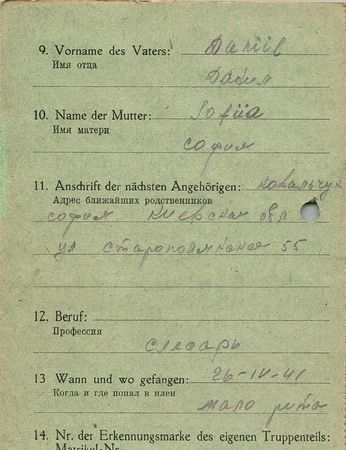 9. Vorname des Vaters: Daniil
Имя отца
Данил
10. Name der Mutter: Sofiia
Имя матери
София
11. Anschrift der nächsten Angehörigen: Ковальчук
Адрес ближайших родственников
София Киевская обл
ул 55
12. Beruf:
Профессия
слесарь
13 Wann und wo gefangen: 26-IV-41
Когда и где попал в плен
14. Nr. der Erkennungsmarke des eigenen Truppenteils:
Matrikel-Nr.